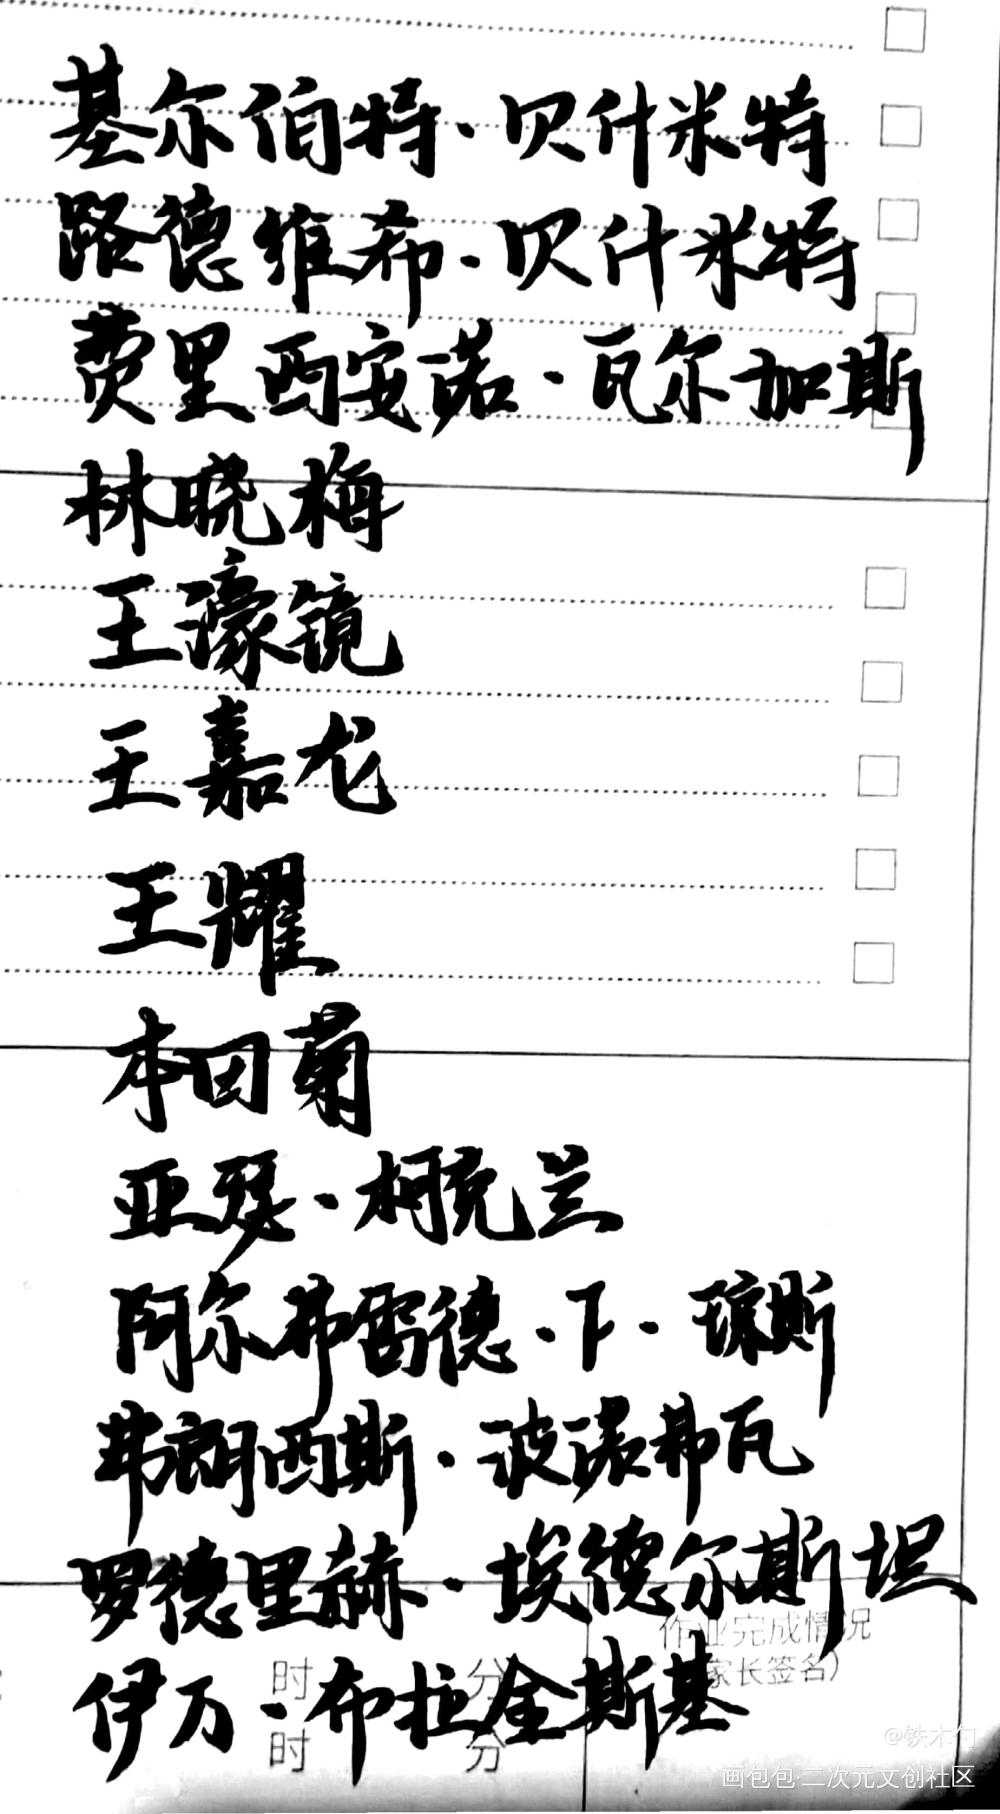 基尔伯特·贝什米特
路德维希·贝什米特
费里西安诺·瓦尔加斯
林晓梅
王濠镜
王嘉龙
王耀
本田菊
亚瑟·柯克兰
阿尔弗雷德·F·琼斯
弗朗西斯·波诺弗瓦
罗德里赫·埃德尔斯坦
作业完成情况
家长签名）
伊万·布拉金斯基
时 分
时 分
@铁木勺
画包包·二次元文创社区